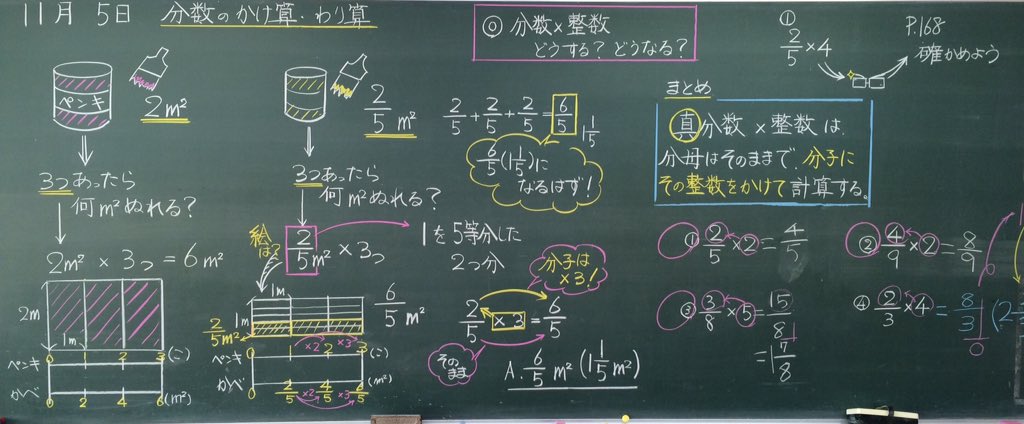 11月 5日 分数のかけ算・わり算
ペンキ
2m²
3つあったら
何m²ぬれる?
2m² × 3つ = 6m²
2m
1m
ペンキ 0 1 2 3 (こ)
かべ 0 2 4 6 (m²)
2/5 m²
3つあったら
何m²ぬれる?
絵は?
2/5 m² × 3つ
1を5等分した
2つ分
1m
1m
2/5 m²
6/5 m²
×2 ×3
ペンキ 0 1 2 3 (こ)
かべ 0 2/5 4/5 6/5 (m²)
×2 ×3
◎ 分数×整数
どうする? どうなる?
2/5 + 2/5 + 2/5 = 6/5
1 1/5
6/5 (1 1/5)に
なるはず!
分子は
×3!
2/5 × 3 = 6/5
そのまま
A. 6/5 m² (1 1/5 m²)
①
2/5 × 4
P.168
確かめよう
まとめ
真分数 × 整数 は、
分母はそのままで、分子に
その整数をかけて計算する。
① 2/5 × 2 = 4/5
② 4/9 × 2 = 8/9
③ 3/8 × 5 = 15/8
= 1 7/8
④ 2/3 × 4 = 8/3